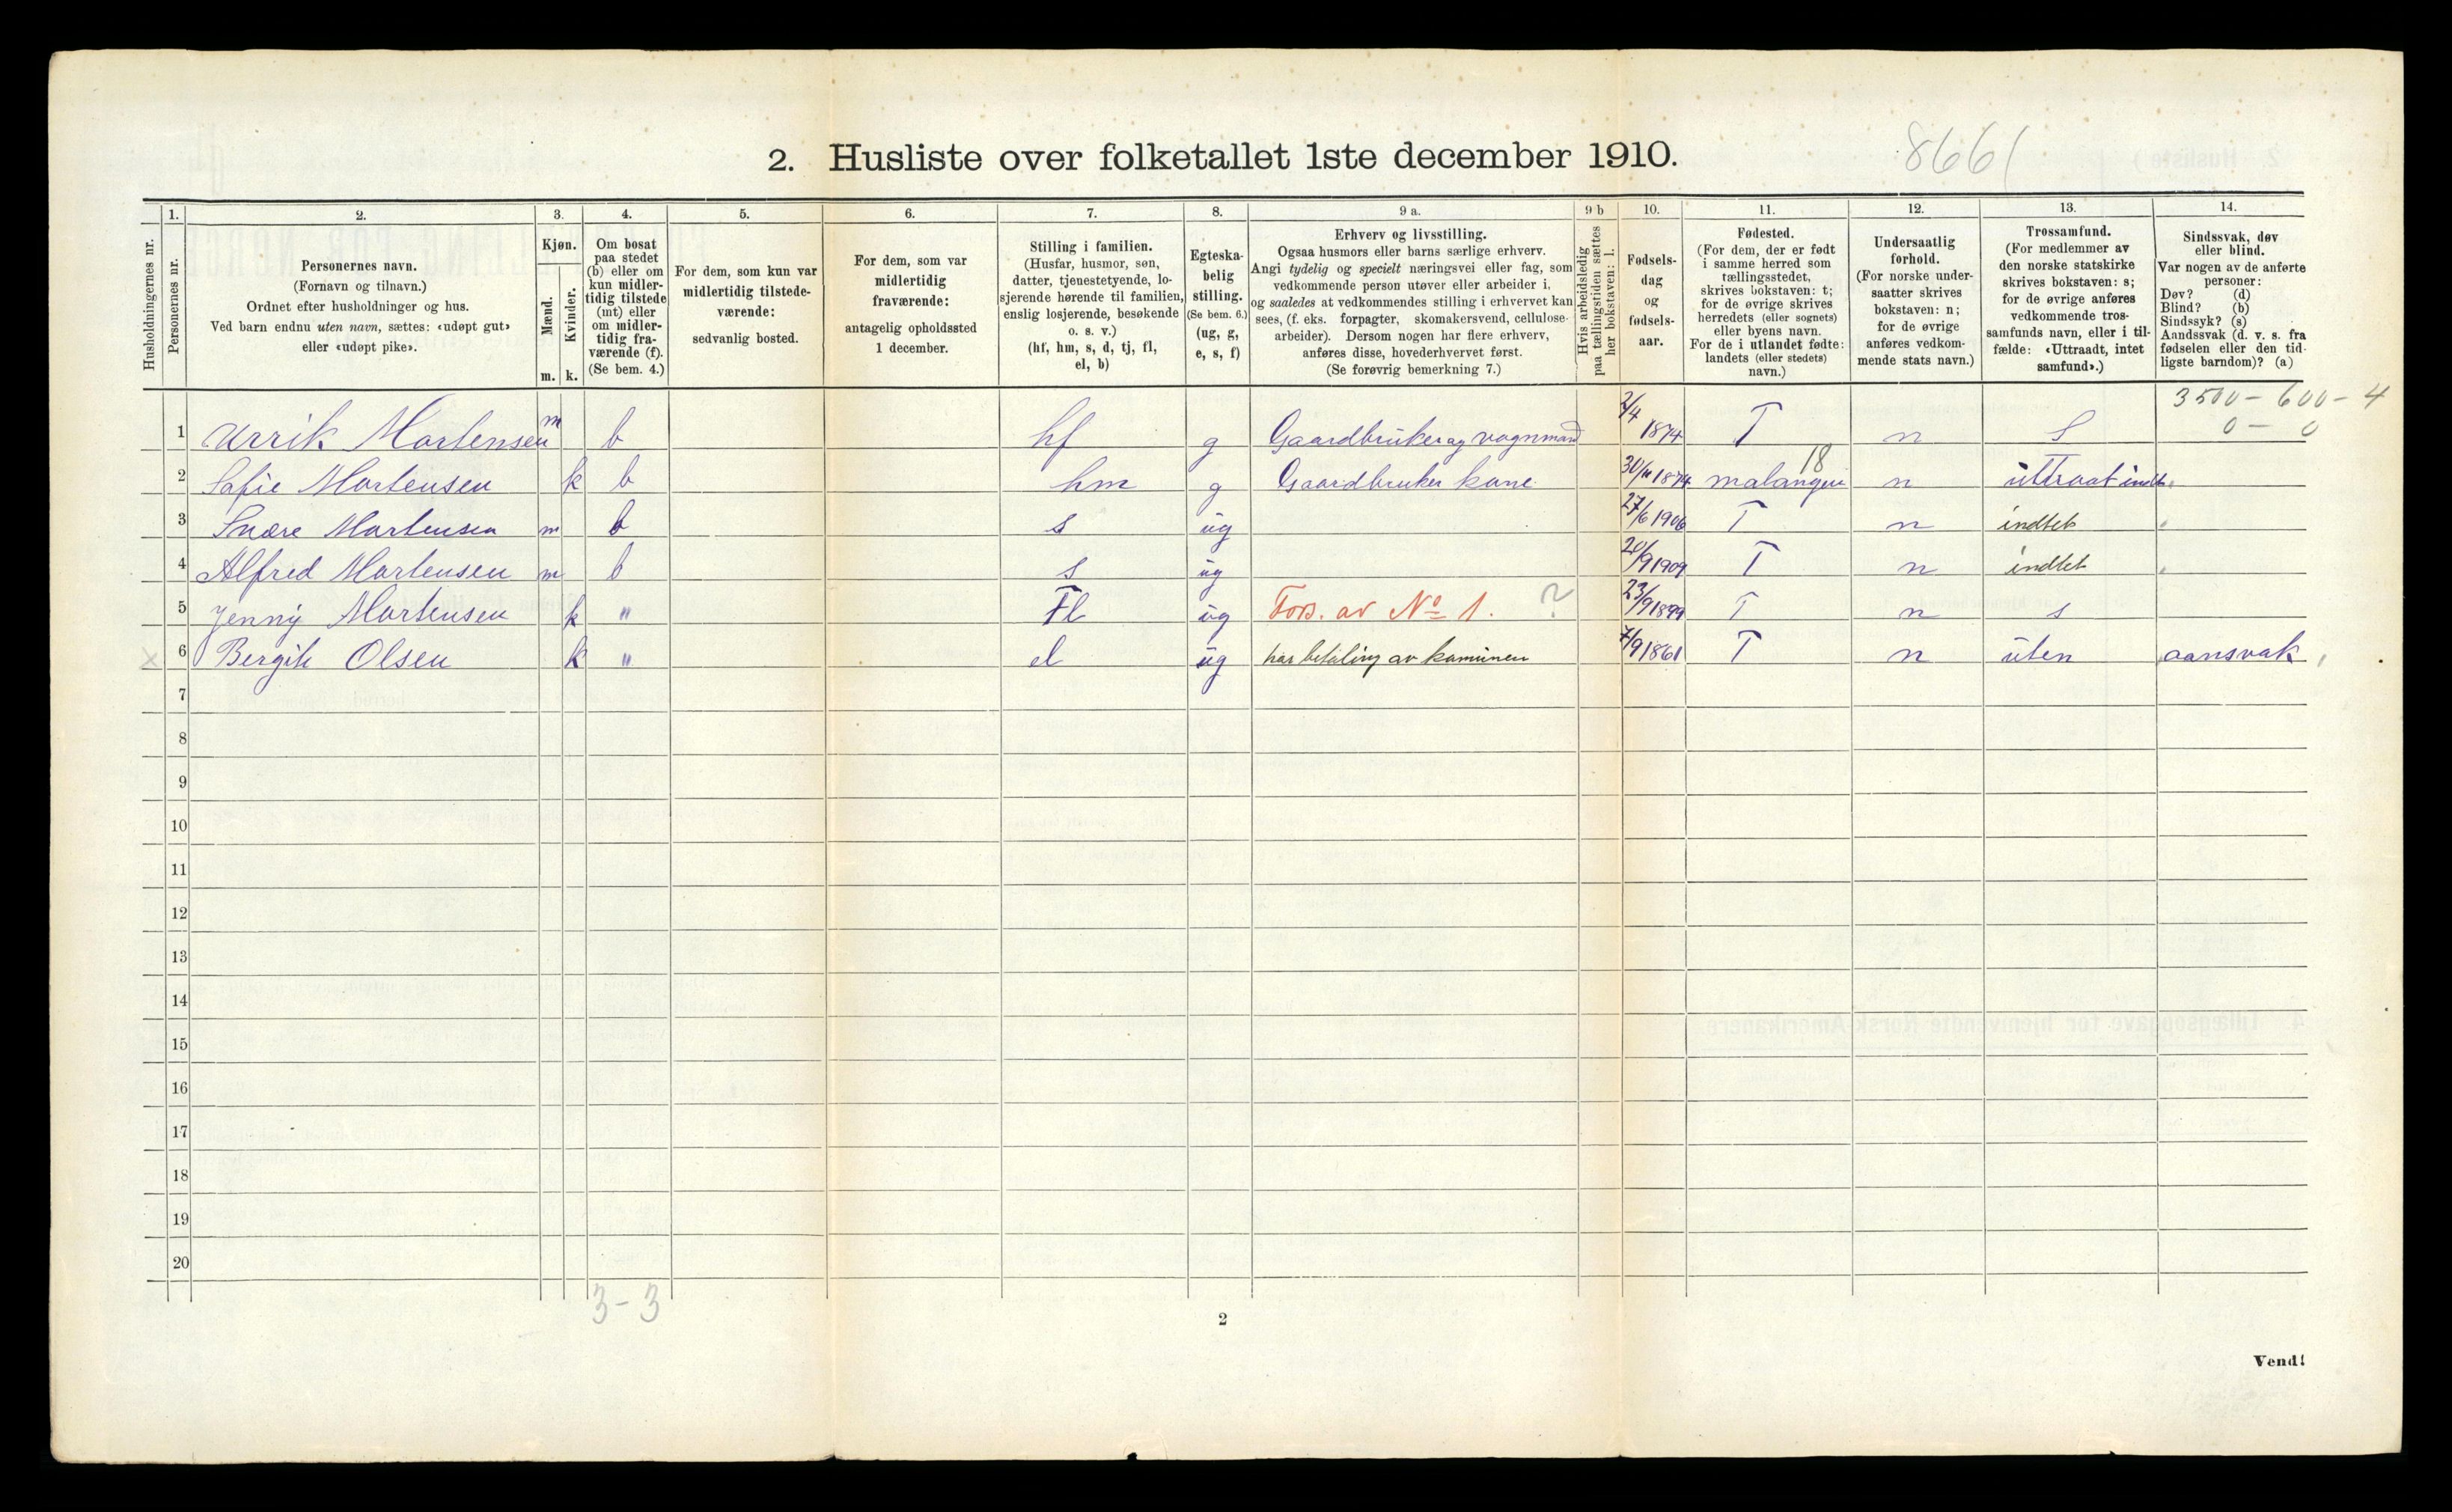 2. Husliste over folketallet 1ste december 1910.
8661
Husholdningernes nr.
1.
Personernes nr.
2.
Personernes navn.
(Fornavn og tilnavn.)
Ordnet efter husholdninger og hus.
Ved barn endnu uten navn, sættes: «udøpt gut»
eller «udøpt pike».
3.
Kjøn.
Mænd.
Kvinder.
m. k.
4.
Om bosat
paa stedet
(b) eller om
kun midler-
tidig tilstede
(mt) eller
om midler-
tidig fra-
værende (f).
(Se bem. 4.)
5.
For dem, som kun var
midlertidig tilstede-
værende:
sedvanlig bosted.
6.
For dem, som var
midlertidig
fraværende:
antagelig opholdssted
1 december.
7.
Stilling i familien.
(Husfar, husmor, søn,
datter, tjenestetyende, lo-
sjerende hørende til familien,
enslig losjerende, besøkende
o. s. v.)
(hf, hm, s, d, tj, fl,
el, b)
8.
Egteska-
belig
stilling.
(Se bem. 6.)
(ug, g,
e, s, f)
9 a.
Erhverv og livsstilling.
Ogsaa husmors eller barns særlige erhverv.
Angi tydelig og specielt næringsvei eller fag, som
vedkommende person utøver eller arbeider i,
og saaledes at vedkommendes stilling i erhvervet kan
sees, (f. eks. forpagter, skomakersvend, cellulose-
arbeider). Dersom nogen har flere erhverv,
anføres disse, hovederhvervet først.
(Se forøvrig bemerkning 7.)
9 b
Hvis arbeidsledig
paa tællingstiden sættes
her bokstaven: l.
10.
Fødsels-
dag
og
fødsels-
aar.
11.
Fødested.
(For dem, der er født
i samme herred som
tællingsstedet,
skrives bokstaven: t;
for de øvrige skrives
herredets (eller sognets)
eller byens navn.
For de i utlandet fødte:
landets (eller stedets)
navn.)
12.
Undersaatlig
forhold.
(For norske under-
saatter skrives
bokstaven: n;
for de øvrige
anføres vedkom-
mende stats navn.)
13.
Trossamfund.
(For medlemmer av
den norske statskirke
skrives bokstaven: s;
for de øvrige anføres
vedkommende tros-
samfunds navn, eller i til-
fælde: «Uttraadt, intet
samfund».)
14.
Sindssvak, døv
eller blind.
Var nogen av de anførte
personer:
Døv? (d)
Blind? (b)
Sindssyk? (s)
Aandssvak (d. v. s. fra
fødselen eller den tid-
ligste barndom)? (a)
3500 - 600 - 4
0 - 0
1 Urrik Mortensen m b hf g Gaardbruker og vognmand 2/4 1874 T n S
18
2 Sofie Mortensen k b hm g Gaardbruker kone 1874 malangen n uttraat indt.
3 Mortensen m b s ug 27/6 1906 T n indtet
4 Alfred Mortensen m b s ug 20/9 1909 T n indtet
5 Jenny Mortensen k " Fl ug Fors. av No 1. ? 23/9 1899 T n s
x 6 Bergit Olsen k " el ug har betaling av kamunen 7/9 1861 T n uten aansvak
7
8
9
10
11
12
13
14
15
16
17
18
19
20
3 - 3
2
Vend!